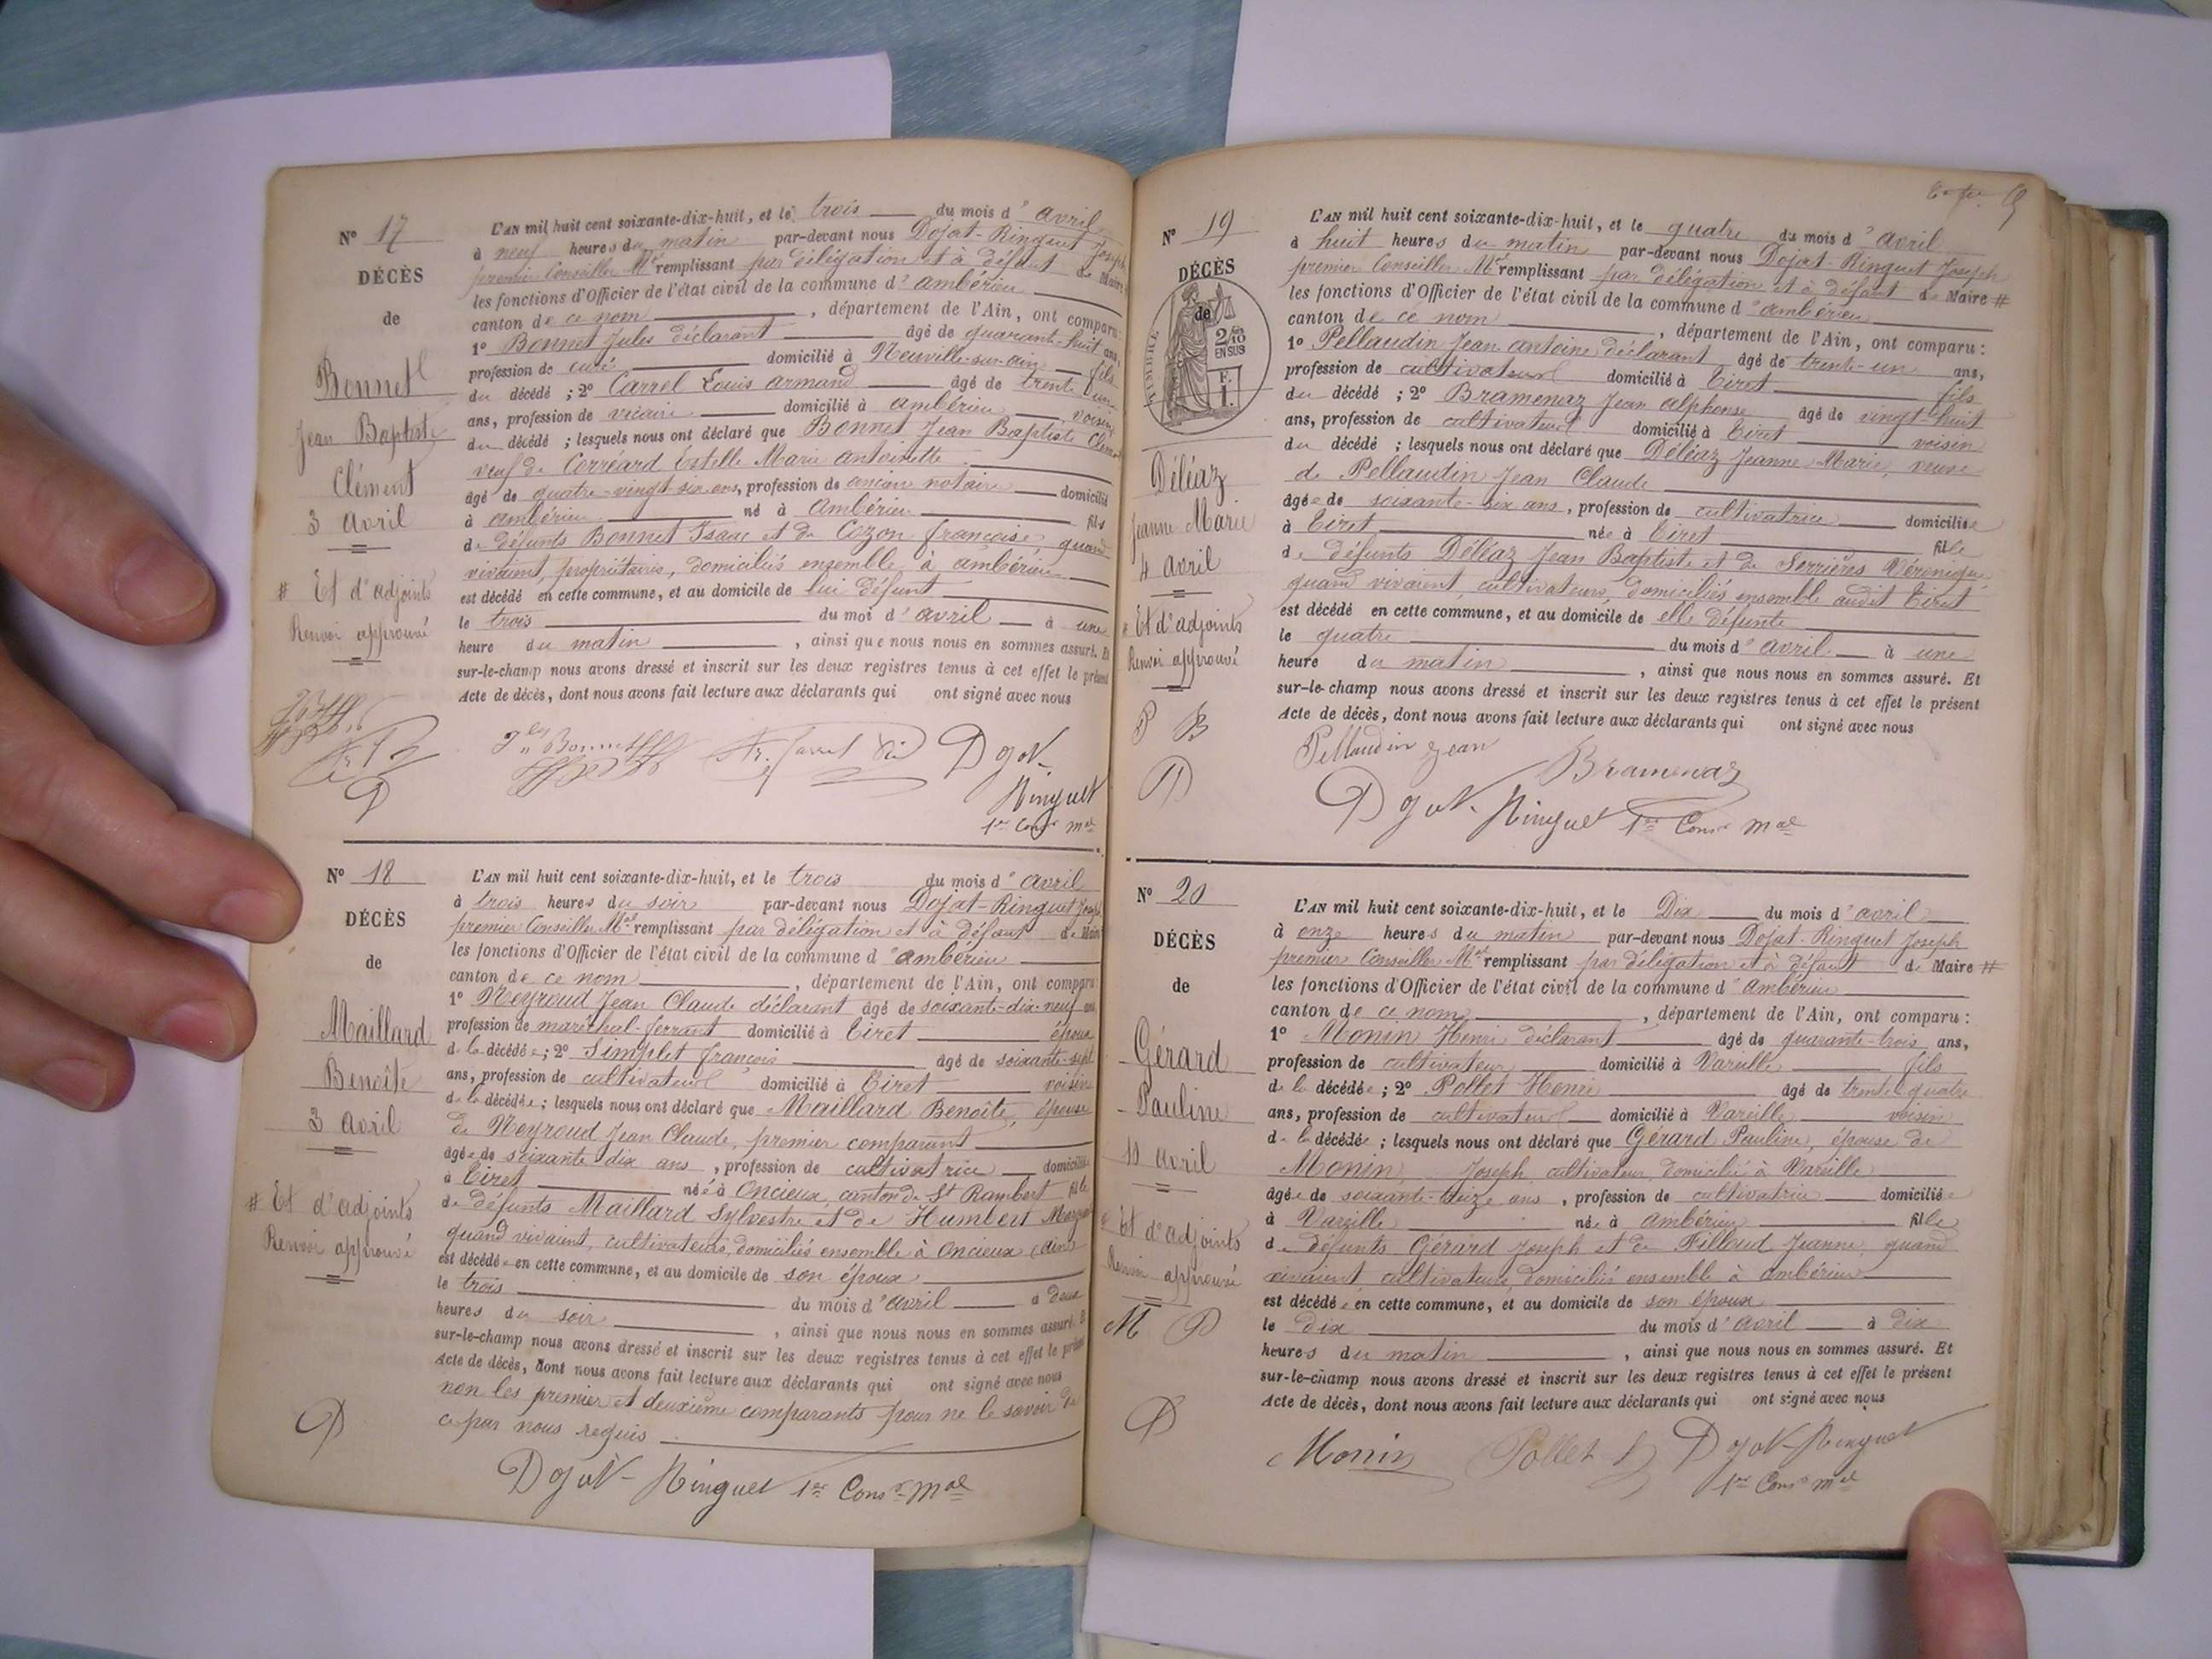 N° 17
DÉCÈS
de
Bonnet
Jean Baptiste
Clément
3 avril
# Et d'adjoints
Renvoi approuvé
L'AN mil huit cent soixante-dix-huit, et le trois du mois d'avril
à neuf heures du matin par-devant nous Dojat-Ringuet Joseph
premier Conseiller Mal remplissant par délégation et à défaut de Maire
les fonctions d'Officier de l'état civil de la commune d'ambérieu
canton de ce nom, département de l'Ain, ont comparu :
1° Bonnet Jules déclarant âgé de quarante-huit ans,
profession de curé domicilié à Neuville-sur-ain fils
du décédé ; 2° Carrel Louis armand âgé de trente un
ans, profession de vicaire domicilié à ambérieu voisin
du décédé ; lesquels nous ont déclaré que Bonnet Jean Baptiste Clément
veuf de Corréard Estelle Marie antoinette
âgé de quatre-vingt six ans, profession de ancien notaire domicilié
à ambérieu né à Ambérieu fils
de défunts Bonnet Isaac et de Cozon françoise, quand
vivaient, propriétaires, domiciliés ensemble à ambérieu
est décédé en cette commune, et au domicile de lui défunt
le trois du moi d'avril à une
heure du matin, ainsi que nous nous en sommes assuré. Et
sur-le-champ nous avons dressé et inscrit sur les deux registres tenus à cet effet le présent
Acte de décès, dont nous avons fait lecture aux déclarants qui ont signé avec nous
Jles Bonnet Dojat-
Ringuet
1er Cons. mal
N° 18
DÉCÈS
de
Maillard
Benoîte
3 avril
# Et d'adjoints
Renvoi approuvé
L'AN mil huit cent soixante-dix-huit, et le trois du mois d'avril
à trois heures du soir par-devant nous Dojat-Ringuet Joseph
premier Conseiller Mal remplissant par délégation et à défaut de Maire
les fonctions d'Officier de l'état civil de la commune d'ambérieu
canton de ce nom, département de l'Ain, ont comparu
1° Neyroud Jean Claude déclarant âgé de soixante-dix-neuf ans
profession de maréchal-ferrant domicilié à Tiret époux
de la décédée ; 2° Simplet françois âgé de soixante-sept
ans, profession de cultivateur domicilié à Tiret voisin
de la décédée ; lesquels nous ont déclaré que Maillard Benoîte, épouse
de Neyroud Jean Claude, premier comparant
âgée de soixante dix ans, profession de cultivatrice domiciliée
à Tiret née à Oncieux, canton de St Rambert fille
de défunts Maillard Sylvestre et de Humbert
quand vivaient, cultivateurs, domiciliés ensemble à Oncieux (ain)
est décédée en cette commune, et au domicile de son époux
le trois du mois d'avril à deux
heures du soir, ainsi que nous nous en sommes assuré. Et
sur-le-champ nous avons dressé et inscrit sur les deux registres tenus à cet effet le présent
Acte de décès, dont nous avons fait lecture aux déclarants qui ont signé avec nous
non les premier et deuxième comparants pour ne le savoir de
ce par nous requis
Dojat-Ringuet 1er Cons. mal
N° 19
DÉCÈS
de
TIMBRE
2/10
EN SUS
F.
1.
Déléaz
Jeanne Marie
4 avril
# Et d'adjoints
Renvoi approuvé
P B
D
L'AN mil huit cent soixante-dix-huit, et le quatre du mois d'avril
à huit heures du matin par-devant nous Dojat-Ringuet Joseph
premier Conseiller Mal remplissant par délégation et à défaut de Maire #
les fonctions d'Officier de l'état civil de la commune d'ambérieu
canton de ce nom, département de l'Ain, ont comparu :
1° Pellaudin Jean antoine déclarant âgé de trente-un ans,
profession de cultivateur domicilié à Tiret fils
du décédé ; 2° Bramenaz Jean alphonse âgé de vingt-huit
ans, profession de cultivateur domicilié à Tiret voisin
du décédé ; lesquels nous ont déclaré que Déléaz Jeanne Marie, veuve
de Pellaudin Jean Claude
âgée de soixante-six ans, profession de cultivatrice domiciliée
à Tiret née à Tiret fille
de défunts Déléaz Jean Baptiste et de Serrières Véronique,
quand vivaient, cultivateurs, domiciliés ensemble audit Tiret
est décédé en cette commune, et au domicile de elle défunte
le quatre du mois d'avril à une
heure du matin, ainsi que nous nous en sommes assuré. Et
sur-le-champ nous avons dressé et inscrit sur les deux registres tenus à cet effet le présent
Acte de décès, dont nous avons fait lecture aux déclarants qui ont signé avec nous
Pellaudin Jean Bramenaz
Dojat-Ringuet 1er Cons. mal
N° 20
DÉCÈS
de
Gérard
Pauline
10 avril
# Et d'adjoints
Renvoi approuvé
M P
D
L'AN mil huit cent soixante-dix-huit, et le Dix du mois d'avril
à onze heures du matin par-devant nous Dojat-Ringuet Joseph
premier Conseiller Mal remplissant par délégation et à défaut de Maire #
les fonctions d'Officier de l'état civil de la commune d'ambérieu
canton de ce nom, département de l'Ain, ont comparu :
1° Monin Henri déclarant âgé de quarante-trois ans,
profession de cultivateur domicilié à Vareille fils
de la décédée ; 2° Pollet Henri âgé de trente quatre
ans, profession de cultivateur domicilié à Vareille voisin
de la décédée ; lesquels nous ont déclaré que Gérard Pauline, épouse de
Monin, Joseph, cultivateur, domicilié à Vareille
âgée de soixante-seize ans, profession de cultivatrice domiciliée
à Vareille née à ambérieu fille
de défunts Gérard Joseph et de Filloud Jeanne, quand
vivaient cultivateurs domiciliés ensemble à ambérieu
est décédée en cette commune, et au domicile de son époux
le dix du mois d'avril à dix
heures du matin, ainsi que nous nous en sommes assuré. Et
sur-le-champ nous avons dressé et inscrit sur les deux registres tenus à cet effet le présent
Acte de décès, dont nous avons fait lecture aux déclarants qui ont signé avec nous
Monin Pollet Dojat-Ringuet
1er Cons. mal